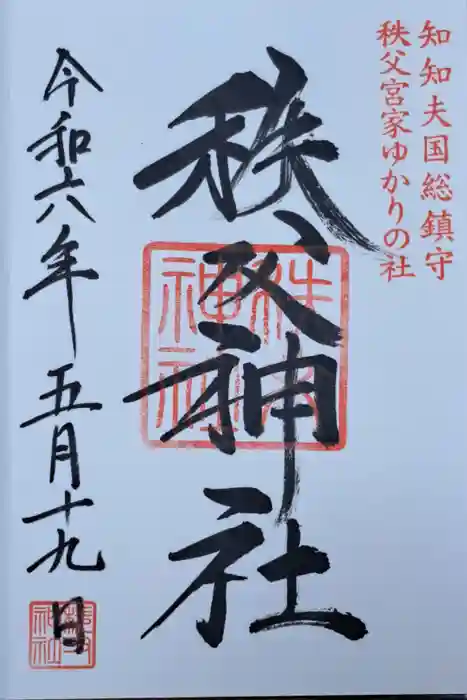 知知夫国総鎮守
秩父宮家ゆかりの社
秩父神社
秩父神社
令和六年五月十九日